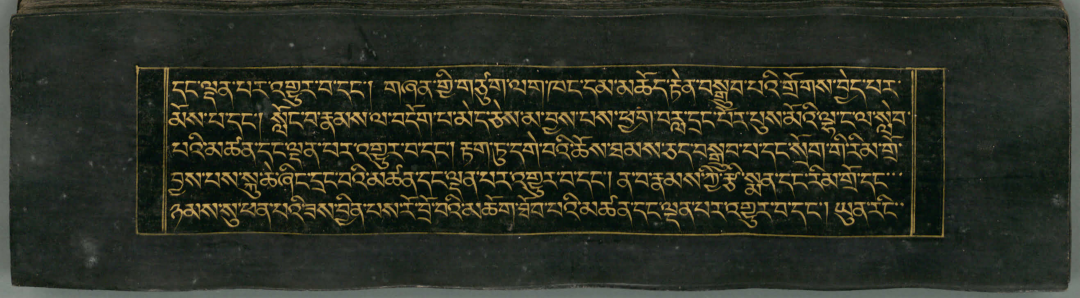 དང་ལྡན་པར་འགྱུར་བ་དང་། གཞན་གྱི་གཙུག་ལག་ཁང་དམ་མཆོད་རྟེན་བསྒྲུབ་པའི་གྲོགས་བྱེད་པར་
མོས་པ་དང་། སློང་བ་རྣམས་ལ་བདོག་པ་མེད་ཅེས་མ་བྱས་པས་ཕྱག་བརླ་དྲང་པོར་པུས་མོའི་ལྷ་ང་ལ་སླེབ་
པའི་མཚན་དང་ལྡན་པར་འགྱུར་བ་དང་། རྟག་ཏུ་དགེ་བའི་ཆོས་ཐམས་ཅད་བསྒྲུབ་པ་དང་སྲོག་གི་རིམ་གྲོ་
བྱས་པས་སྐུ་ཆེ་ཞིང་དྲང་བའི་མཚན་དང་ལྡན་པར་འགྱུར་བ་དང་། ན་བ་རྣམས་ཀྱི་རྩི་སྨན་དང་རིམ་གྲོ་དང་
ཉམས་སུ་ཕན་པའི་ཟས་བྱིན་པས་རོ་བྲོ་བའི་མཆོག་ཐོབ་པའི་མཚན་དང་ལྡན་པར་འགྱུར་བ་དང་། ཡུན་རིང་